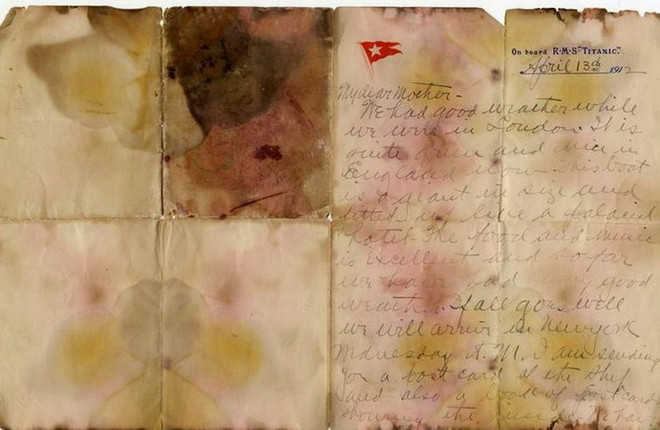 On board R·M·S "TITANIC."
April 13th 1912
My dear Mother-
We had good weather while
we were in London. It is
quite green and nice in
England now. This boat
is a giant in size and
fitted up like a palacial
hotel. The food and music
is excellent and so far
we have had good
weather. If all goes well
we will arrive in New York
Wednesday A.M. I am sending
you a post card of the ship
and also a book of postcards
showing the inside